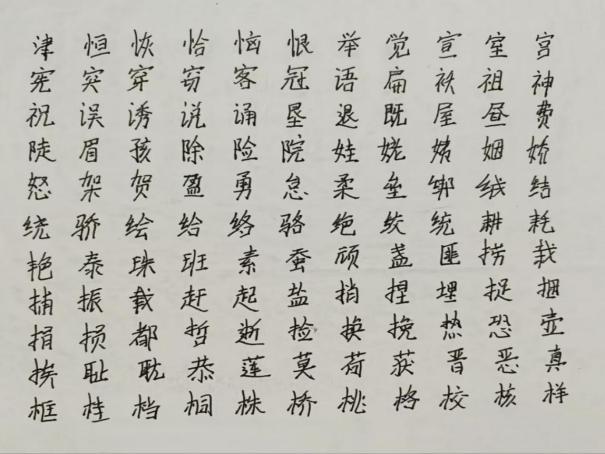 津恒恢恰恼恨举觉宣室宫
宪突穿窃客冠语扁袄祖神
祝误诱说诵垦退既屋昼费
陡眉孩除险院娃姥姨姻娇
怒架贺盈勇怠柔垒绑绒结
绕骄绘给络骆绝绞统耕耗
艳泰珠班素蚕顽盏匪捞栽
捕振载赶起盐捎捏埋捉捆
捐损都哲逝捡换挽热恐壶
挨耻耽恭莲莫荷获晋恶真
框桂档桐株桥桃格校核样